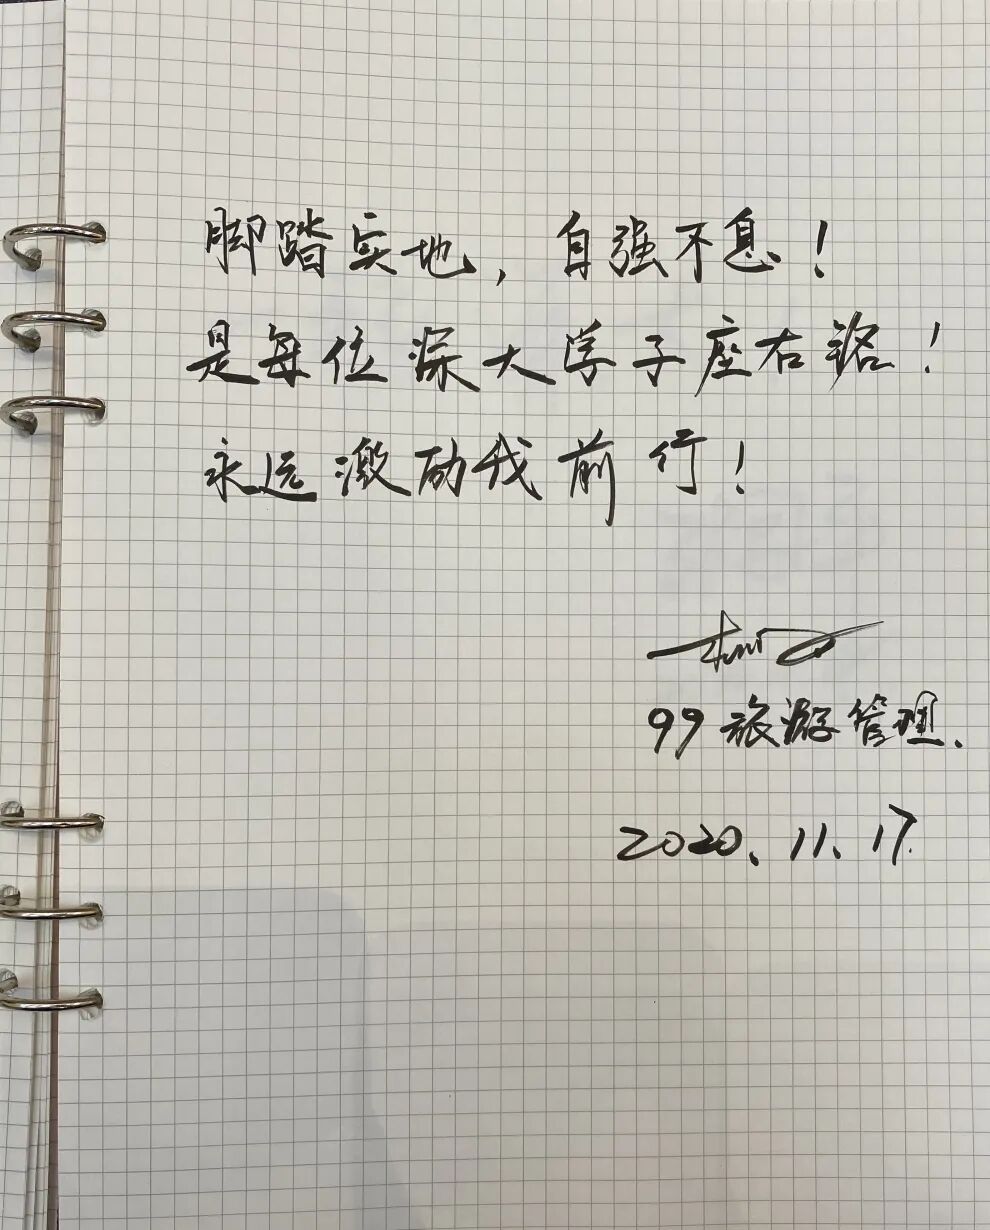 脚踏实地，自强不息！
是每位深大学子座右铭！
永远激励我前行！
99旅游管理.
2020.11.17.